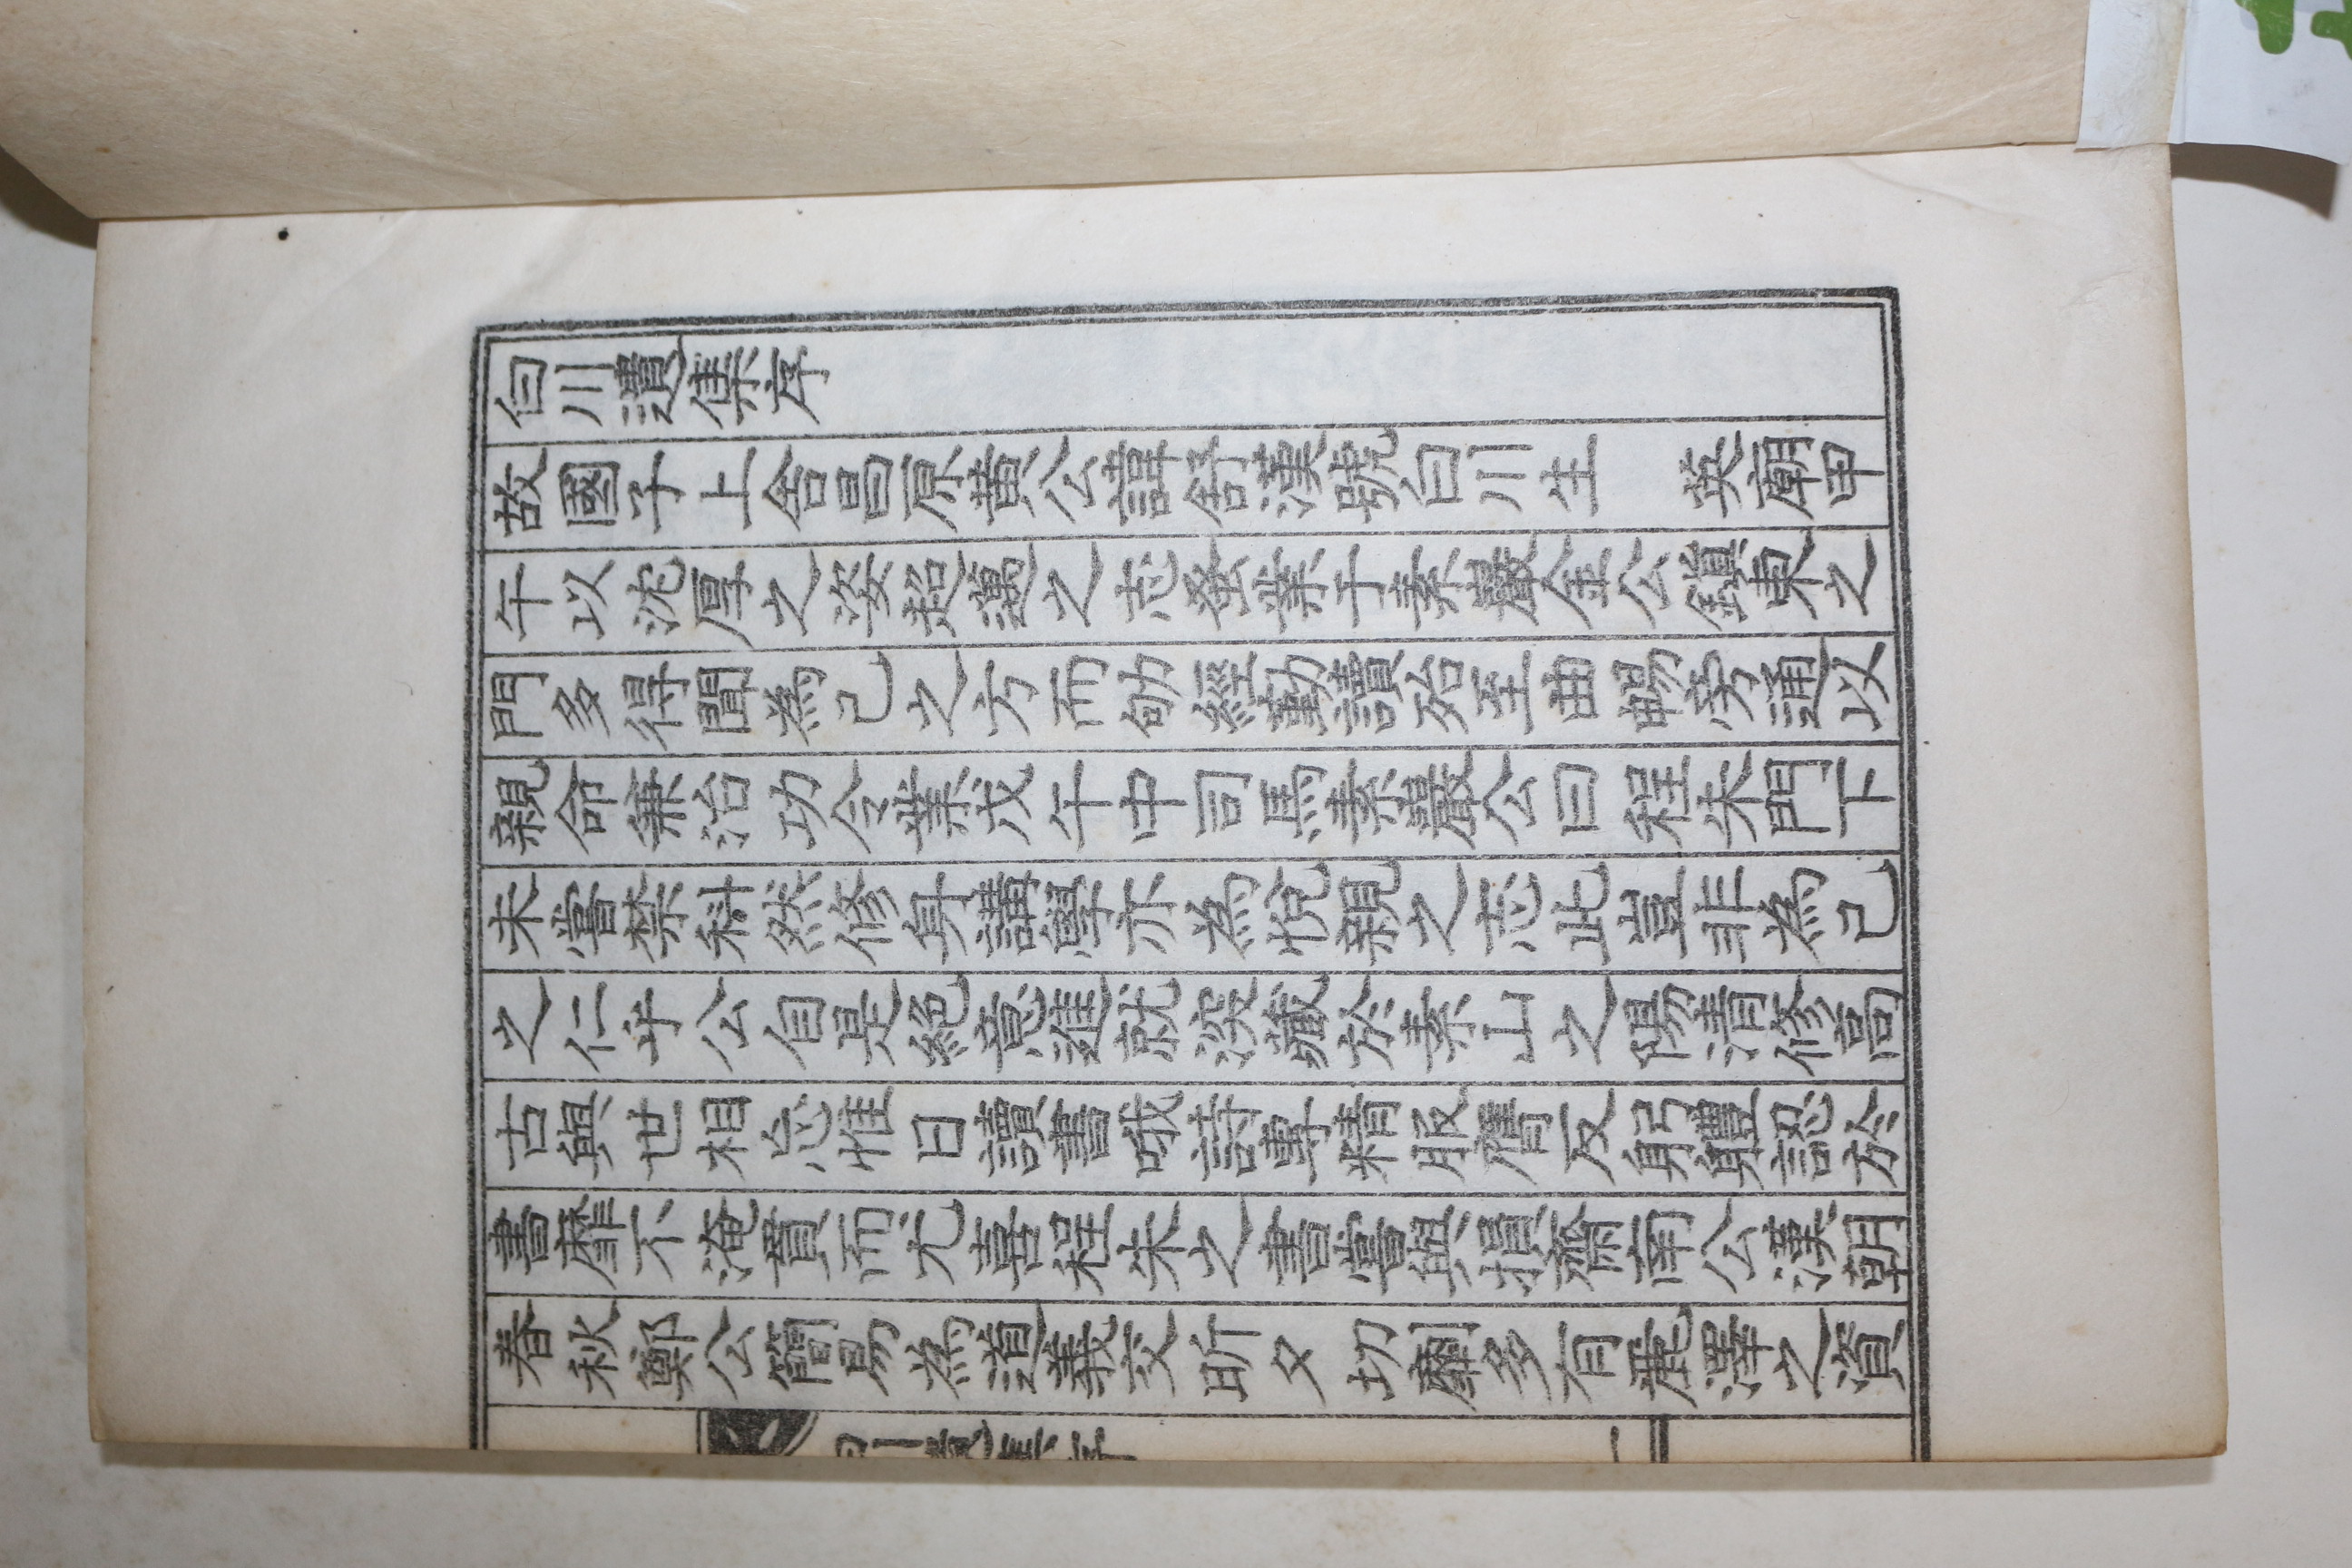 白川遺集序
故國子上舍昌原黃公諱舒漢號白川生 英廟甲
午以沈厚之姿超邁之志蚤業于素巖金公鎭東之
門多得聞為己之方而劬經勤讀殆至曲暢旁通以
親命兼治功令業戊午中司馬素巖公曰程朱門下
未嘗禁科然修身講學亦為悅親之志此豈非為己
之仁乎公自是絕意進就深藏於素山之陽清修高
古與世相忘惟日讀書哦詩專精服膺反躬軆認於
書靡不淹貫而尤喜程朱之書嘗與損齋南公漢朝
春秋鄭公簡易為道義交昕夕切劘多有麗澤之資
白川遺集序
一